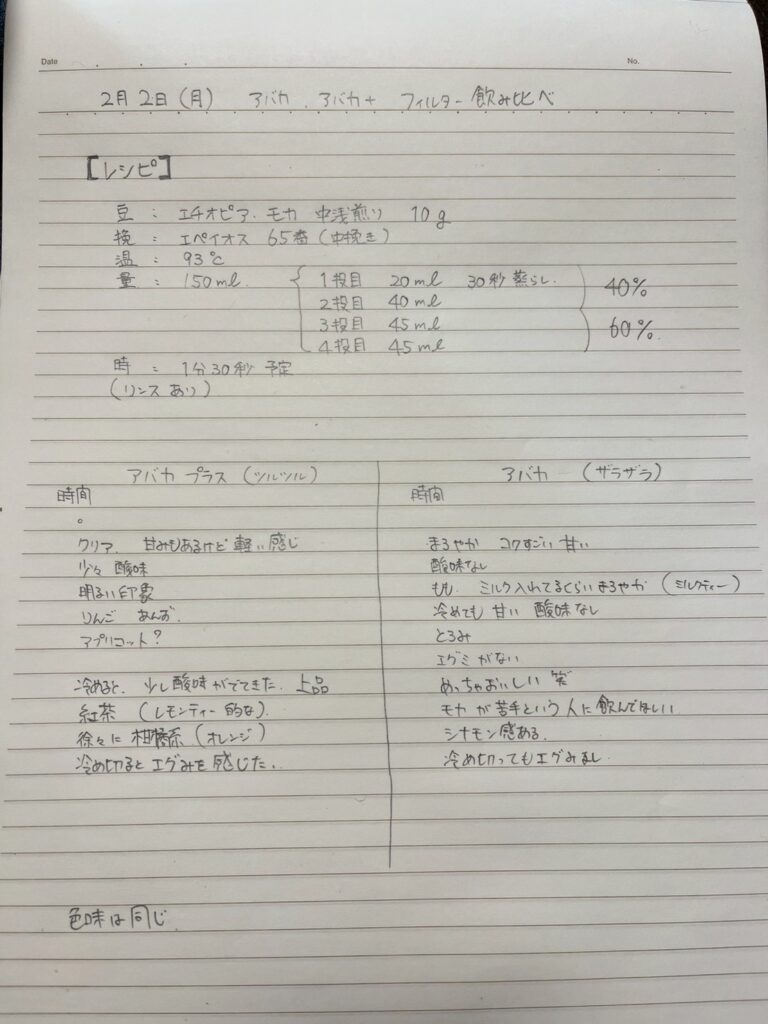 Date
No.
2月2日(月) アバカ、アバカ+ フィルター飲み比べ
【レシピ】
豆 : エチオピア.モカ 中浅煎り 10g
挽 : エペイオス 65番(中挽き)
温 : 93℃
量 : 150ml. 1投目 20ml 30秒蒸らし 40%
2投目 40ml
3投目 45ml 60%
4投目 45ml
時 : 1分30秒 予定
(リンスあり)
アバカ プラス (ツルツル)
時間
クリア. 甘みもあるけど軽い感じ
少々 酸味
明るい印象
りんご あんず.
アプリコット?
冷めると、少し酸味がでてきた. 上品
紅茶 (レモンティー的な)
徐々に 柑橘系 (オレンジ)
冷め切るとエグみを感じた.
アバカ (ザラザラ)
時間
まろやか コクすごい 甘い
酸味なし
もも. ミルク入れてるくらいまろやか (ミルクティー)
冷めても甘い 酸味なし
とろみ
エグミがない
めっちゃおいしい 笑
モカが苦手という人に飲んでほしい
シナモン感ある.
冷め切ってもエグみなし
色味は同じ